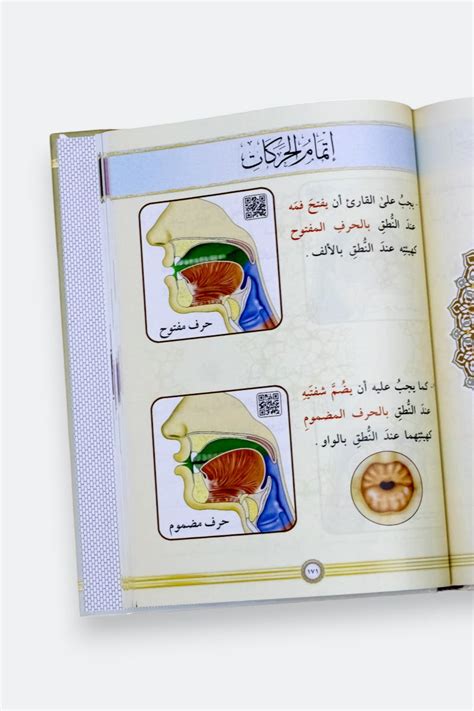 إتمام الحركات
يجبُ علىٰ القارئ أن يفتحَ فمَه
عندَ النُّطقِ بالحرفِ المفتوح
كهيئتِه عندَ النُّطقِ بالألف .
حرف مفتوح
كما يجبُ عليه أن يضُمَّ شفتيهِ
عندَ النُّطقِ بالحرف المضموم
كهيئتِهما عندَ النُّطقِ بالواو .
حرف مضموم
١٧١